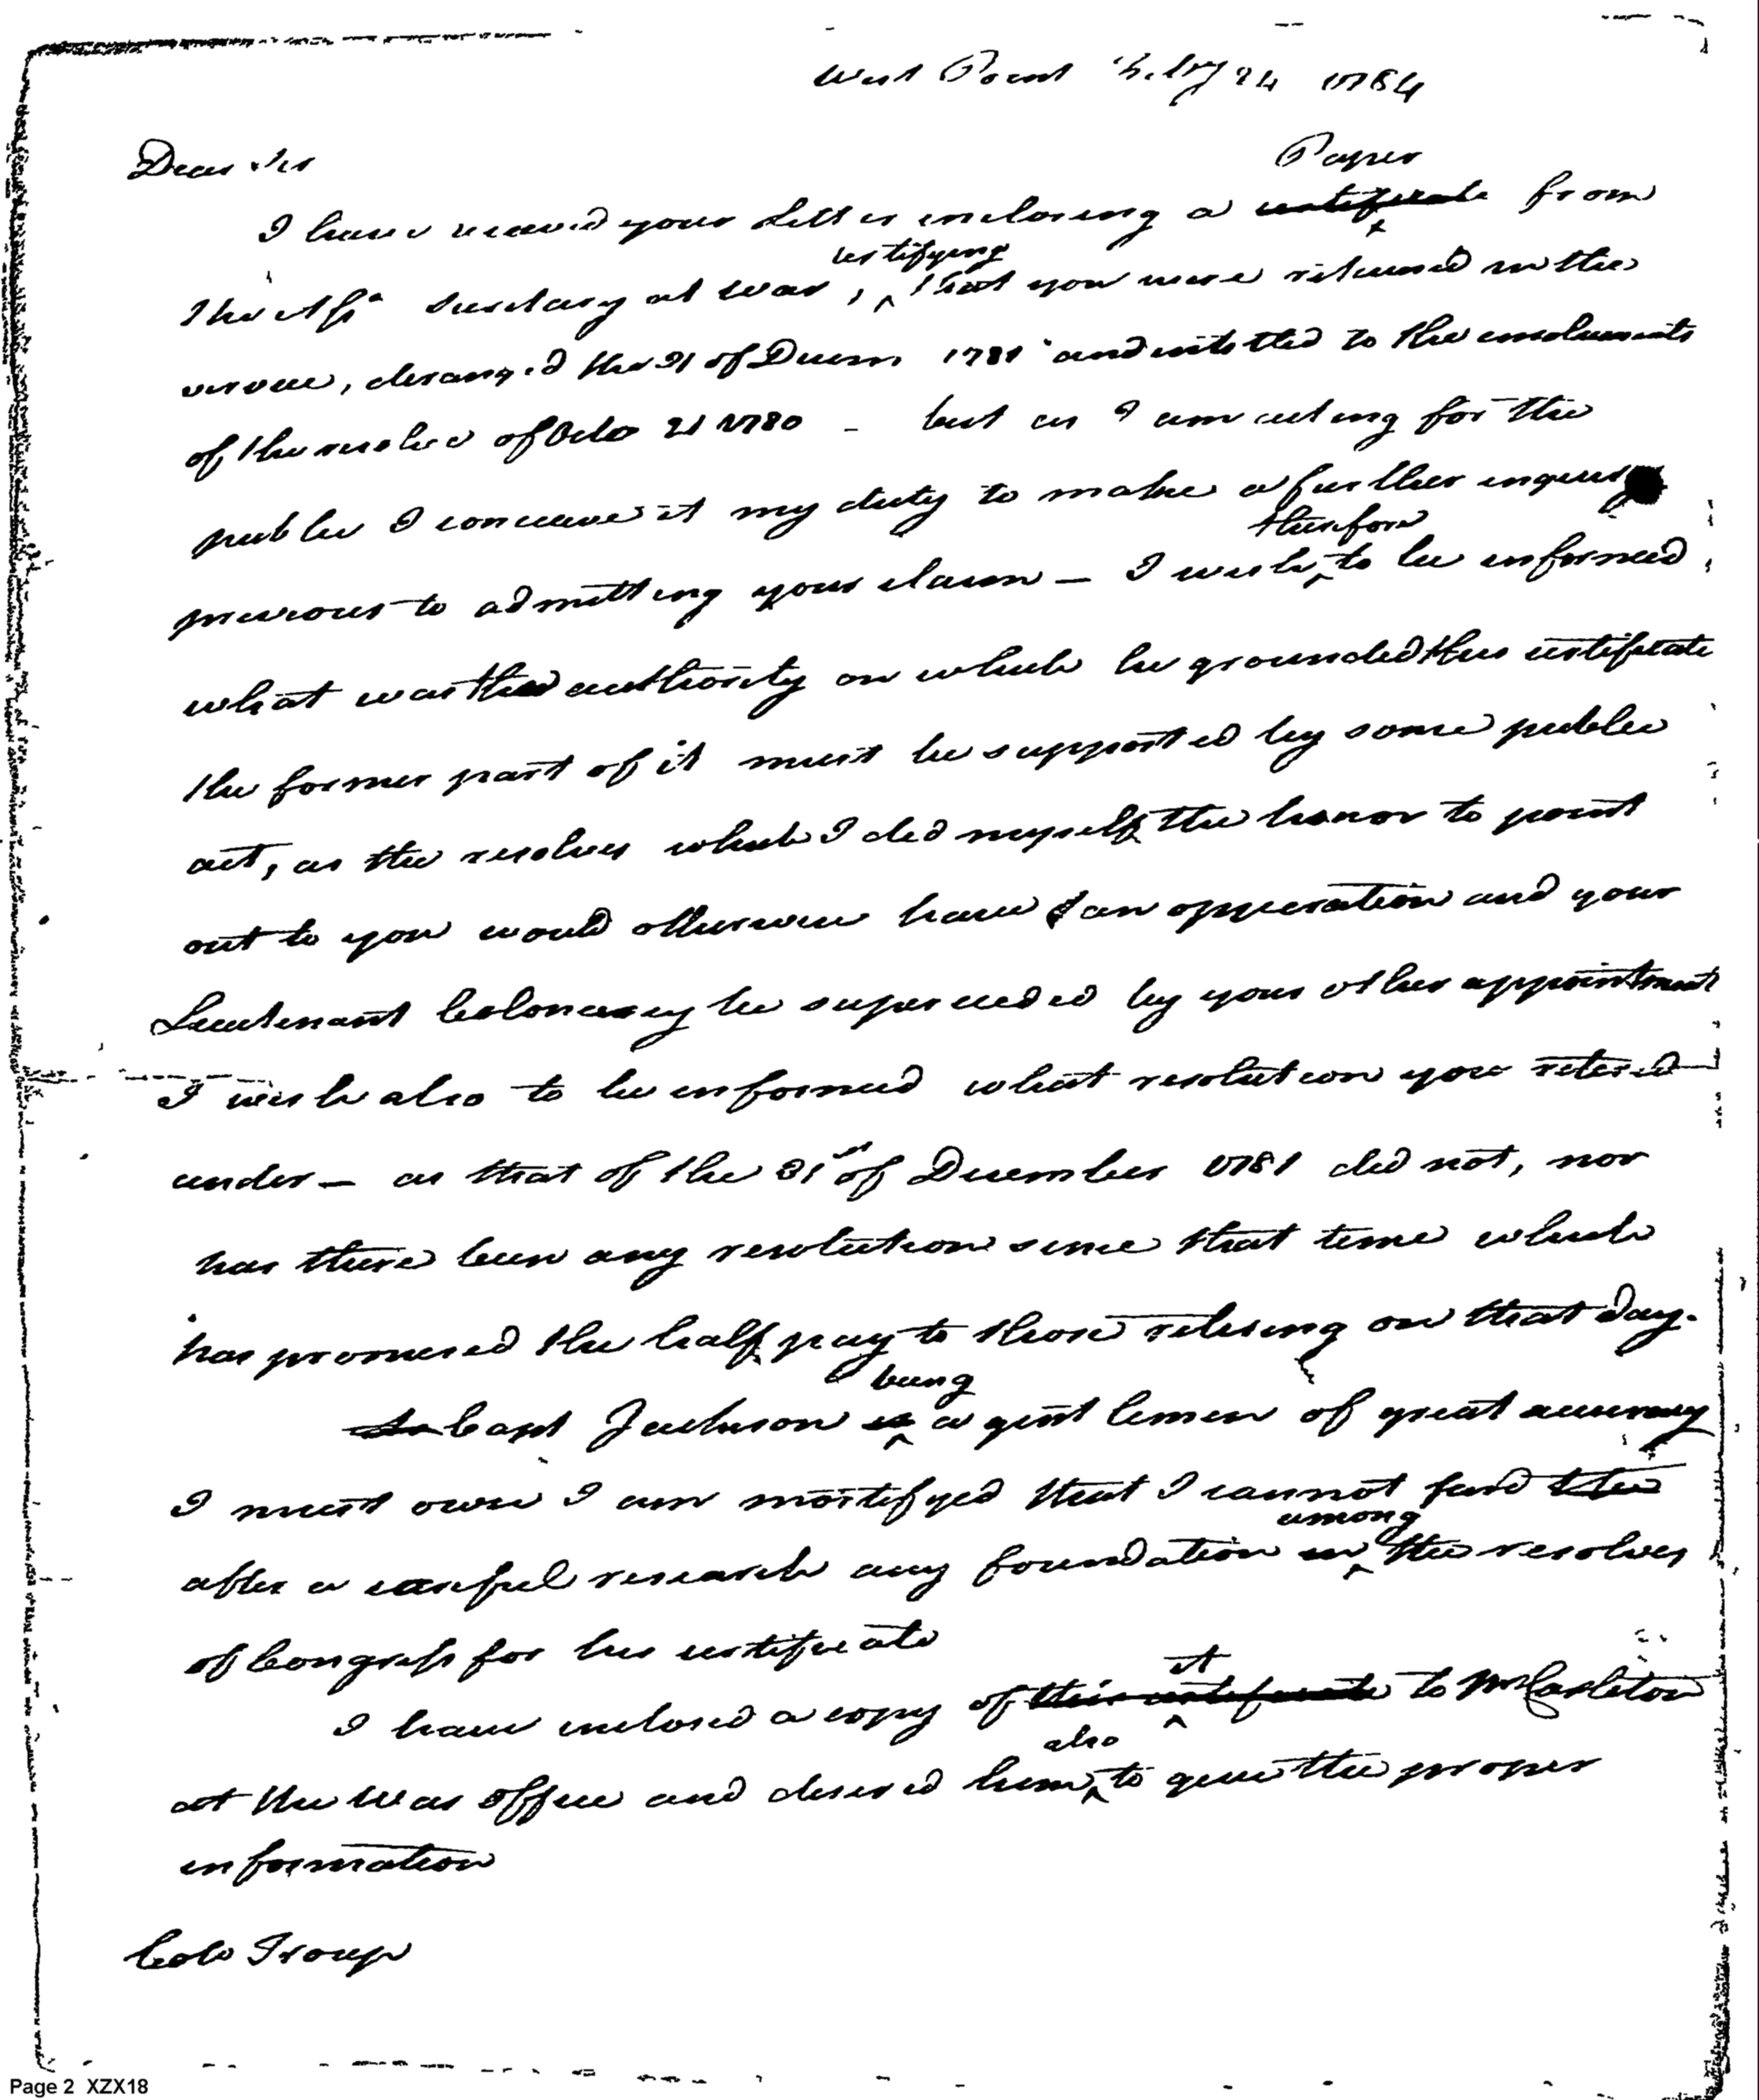 West Point Feby 24 1784
Dear Sir
Paper
I have received your Letter inclosing a certificate from
certifying
the Asst Secretary at War, that you were retained in the
service, deranged the 31 of Decem 1781 and intitled to the emoluments
of the resolve of Octo 21 1780 - but as I am acting for the
public I conceive it my duty to make a further inquiry
therefore
previous to admitting your claim — I wish to be informed
what was the authority on which he grounded this certificate
the former part of it must be supported by some public
act, as the resolves which I did myself the honor to point
out to you would otherwise have an opperation and your
Lieutenant Coloncy be superceeded by your other appointment
I wish also to be informed what resolution you retired
under — as that of the 31st of December 1781 did not, nor
has there been any resolution since that time which
has promised the half pay to those retiring on that day.
being
As Capt Jackson is a gentlemen of great accuracy
I must own I am mortifyed that I cannot find the
among
after a careful research any foundation in the resolves
of Congress for his certificate
it
I have inclosed a copy of this certificate to Mr Carleton
also
at the War office and desired him to give the proper
information
Colo Troup
Page 2 XZX18